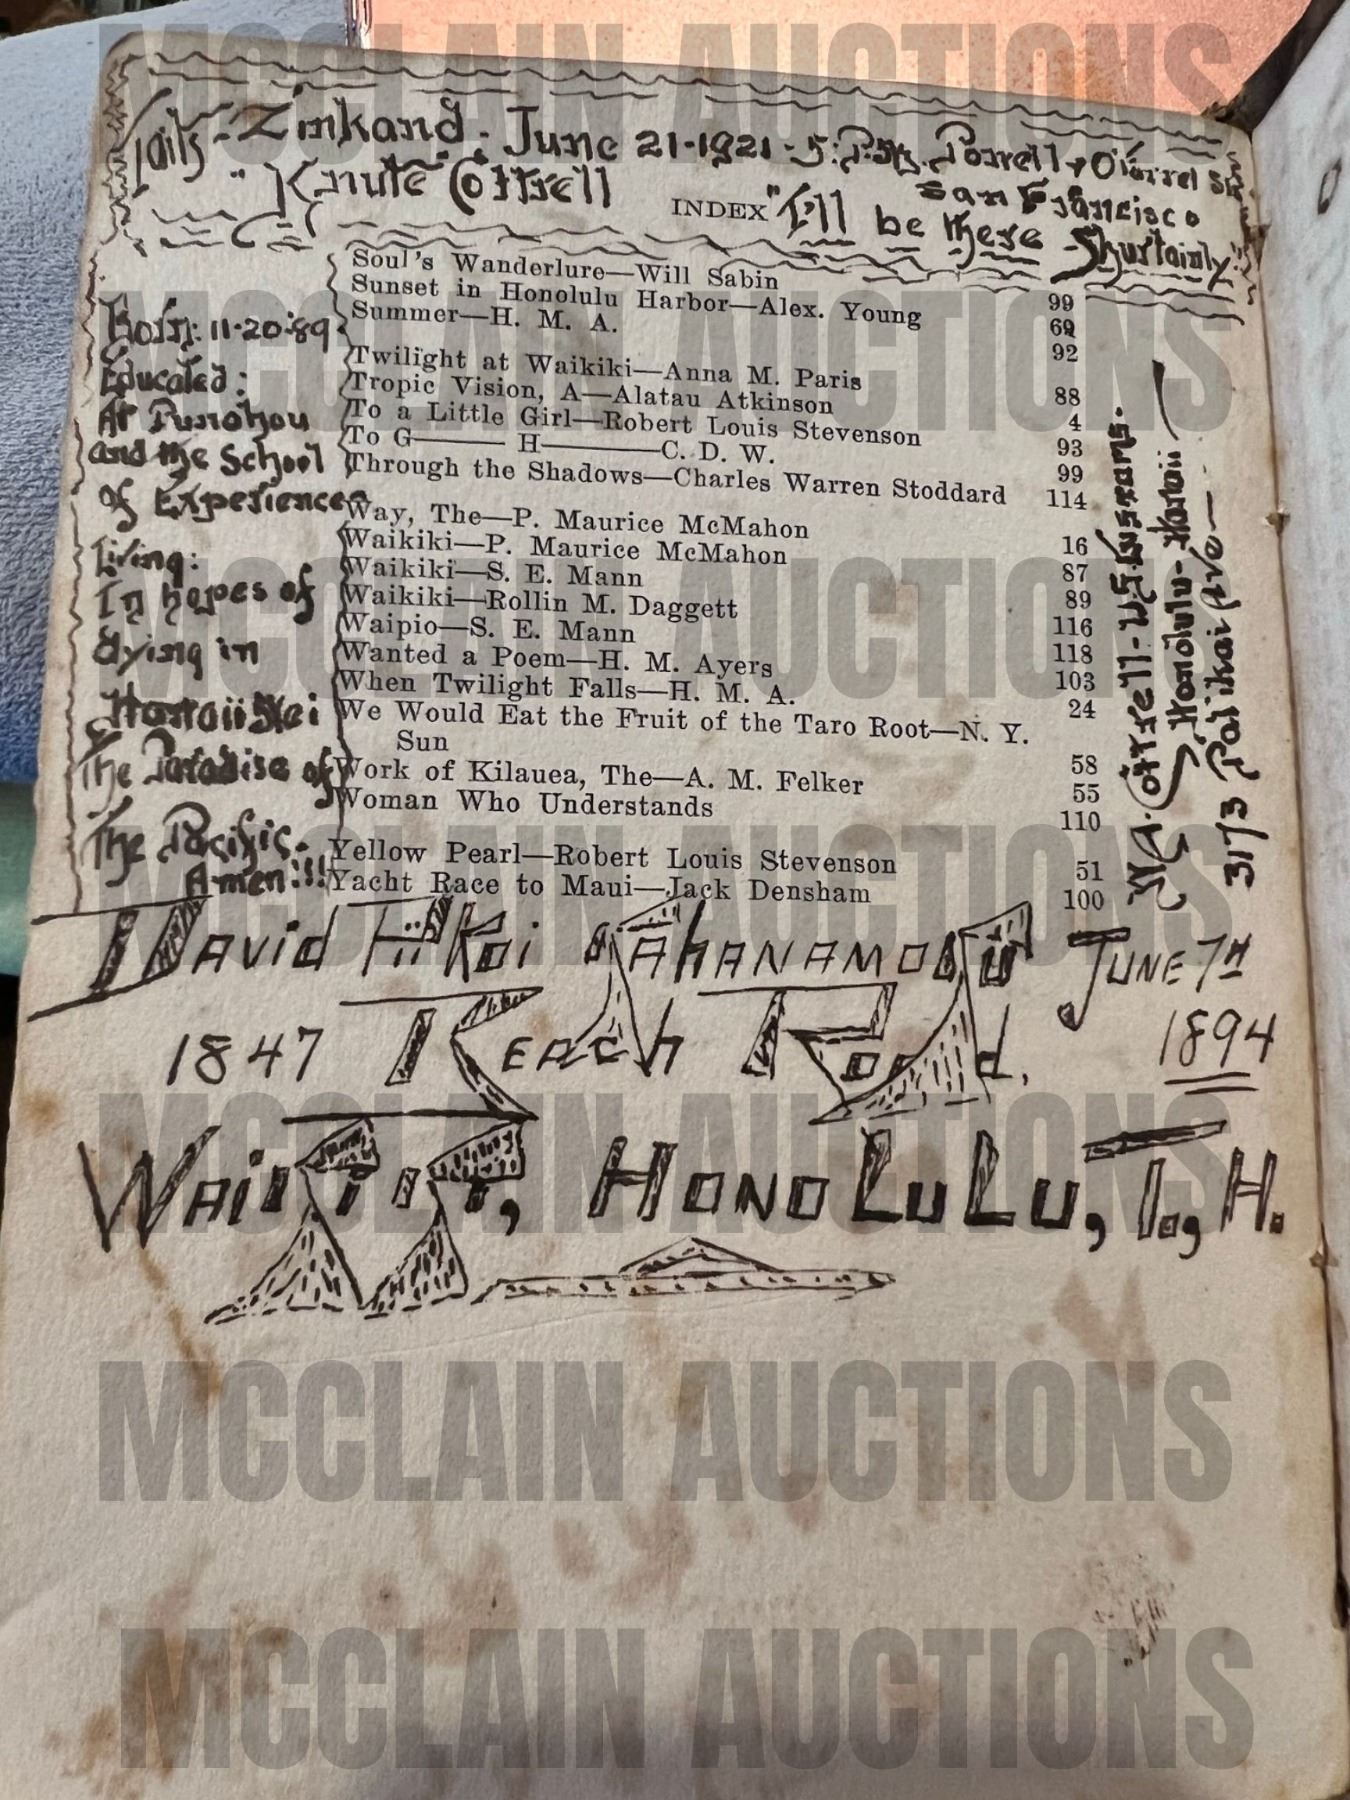 Zinkand. June 21-1921-5: P.M. Powell & O'Farrel Sts.
" Knute Cottrell
San Francisco
INDEX "I'll be there Shurtainly"!!
Soul's Wanderlure—Will Sabin 99
Sunset in Honolulu Harbor—Alex. Young 69
Summer—H. M. A. 92
Twilight at Waikiki—Anna M. Paris 88
Tropic Vision, A—Alatau Atkinson 4
To a Little Girl—Robert Louis Stevenson 93
To G——— H————C. D. W. 99
Through the Shadows—Charles Warren Stoddard 114
Way, The—P. Maurice McMahon 16
Waikiki—P. Maurice McMahon 87
Waikiki—S. E. Mann 89
Waikiki—Rollin M. Daggett 116
Waipio—S. E. Mann 118
Wanted a Poem—H. M. Ayers 103
When Twilight Falls—H. M. A. 24
We Would Eat the Fruit of the Taro Root—N. Y.
Sun 58
Work of Kilauea, The—A. M. Felker 55
Woman Who Understands 110
Yellow Pearl—Robert Louis Stevenson 51
Yacht Race to Maui—Jack Densham 100
Born: 11-20-'89
Educated:
At Punahou
and the School
of Experience
Living:
In hopes of
dying in
Hawaii Nei
The Paradise of
The Pacific.
Amen!!!
Cottrell-U.S.
Honolulu-Hawaii
3173 Palikai Ave—
David Piikoi Kahanamoku June 7th
1847 Beach Road. 1894
Waikiki, Honolulu, T., H.
MCCLAIN AUCTIONS
MCCLAIN AUCTIONS
MCCLAIN AUCTIONS
MCCLAIN AUCTIONS
MCCLAIN AUCTIONS
MCCLAIN AUCTIONS
MCCLAIN AUCTIONS